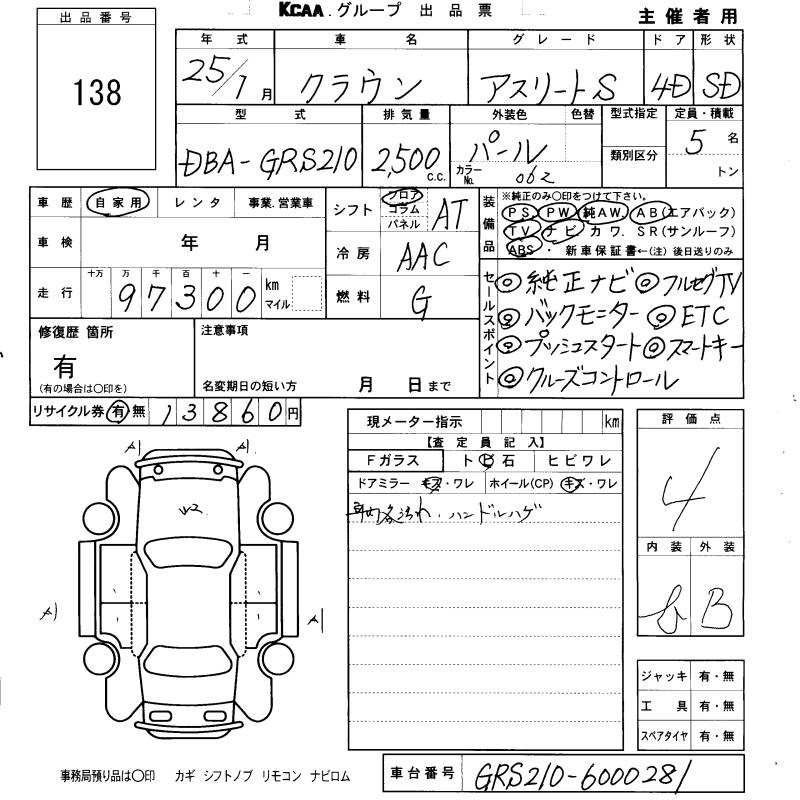 KCAA.グループ 出品票
主催者用
出品番号
138
年式 車名 グレード ドア 形状
25/1月 クラウン アスリートS 4D SD
型式 排気量 外装色 色替 型式指定 定員・積載
DBA-GRS210 2,500 C.C. パール カラーNo. 062 類別区分 5名 トン
車歴 自家用 レンタ 事業.営業車
車検 年 月
走行 十万 万 千 百 十 一
97300 km マイル
シフト フロア コラム パネル AT
冷房 AAC
燃料 G
装備品 ※純正のみ〇印をつけて下さい。
PS PW 純AW AB(エアバック)
TV ナビ カワ. SR(サンルーフ)
ABS ・ 新車保証書←(注)後日送りのみ
セールスポイント ◎純正ナビ ◎フルセグTV
◎バックモニター ◎ETC
◎プッシュスタート ◎スマートキー
◎クルーズコントロール
修復歴 箇所
有
(有の場合は〇印を)
注意事項
名変期日の短い方 月 日まで
リサイクル券 有 無 13860円
現メーター指示 km
【査定員記入】
Fガラス トビ石 ヒビワレ
ドアミラー キズ・ワレ ホイール(CP) キズ・ワレ
ハンドルハゲ
評価点
4
内装 外装
B
A1 A1
A1 A1
ジャッキ 有・無
工具 有・無
スペアタイヤ 有・無
事務局預り品は〇印 カギ シフトノブ リモコン ナビロム
車台番号 GRS210-6000281